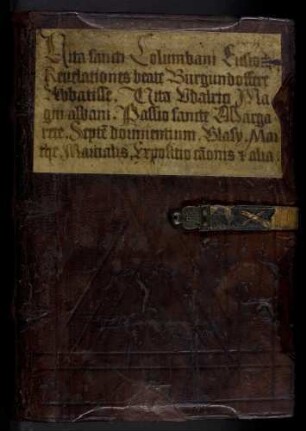 Vita sancti Columbani Eusto
Reuelationes beate Burgundoffere
Abbatisse. Vita Vdalrici Ma
gni albani. Passio sancte Marga
rete. Septē dormientium. Blasij. Mat
the. Martialis. Expositio cāonis ⁊ alia